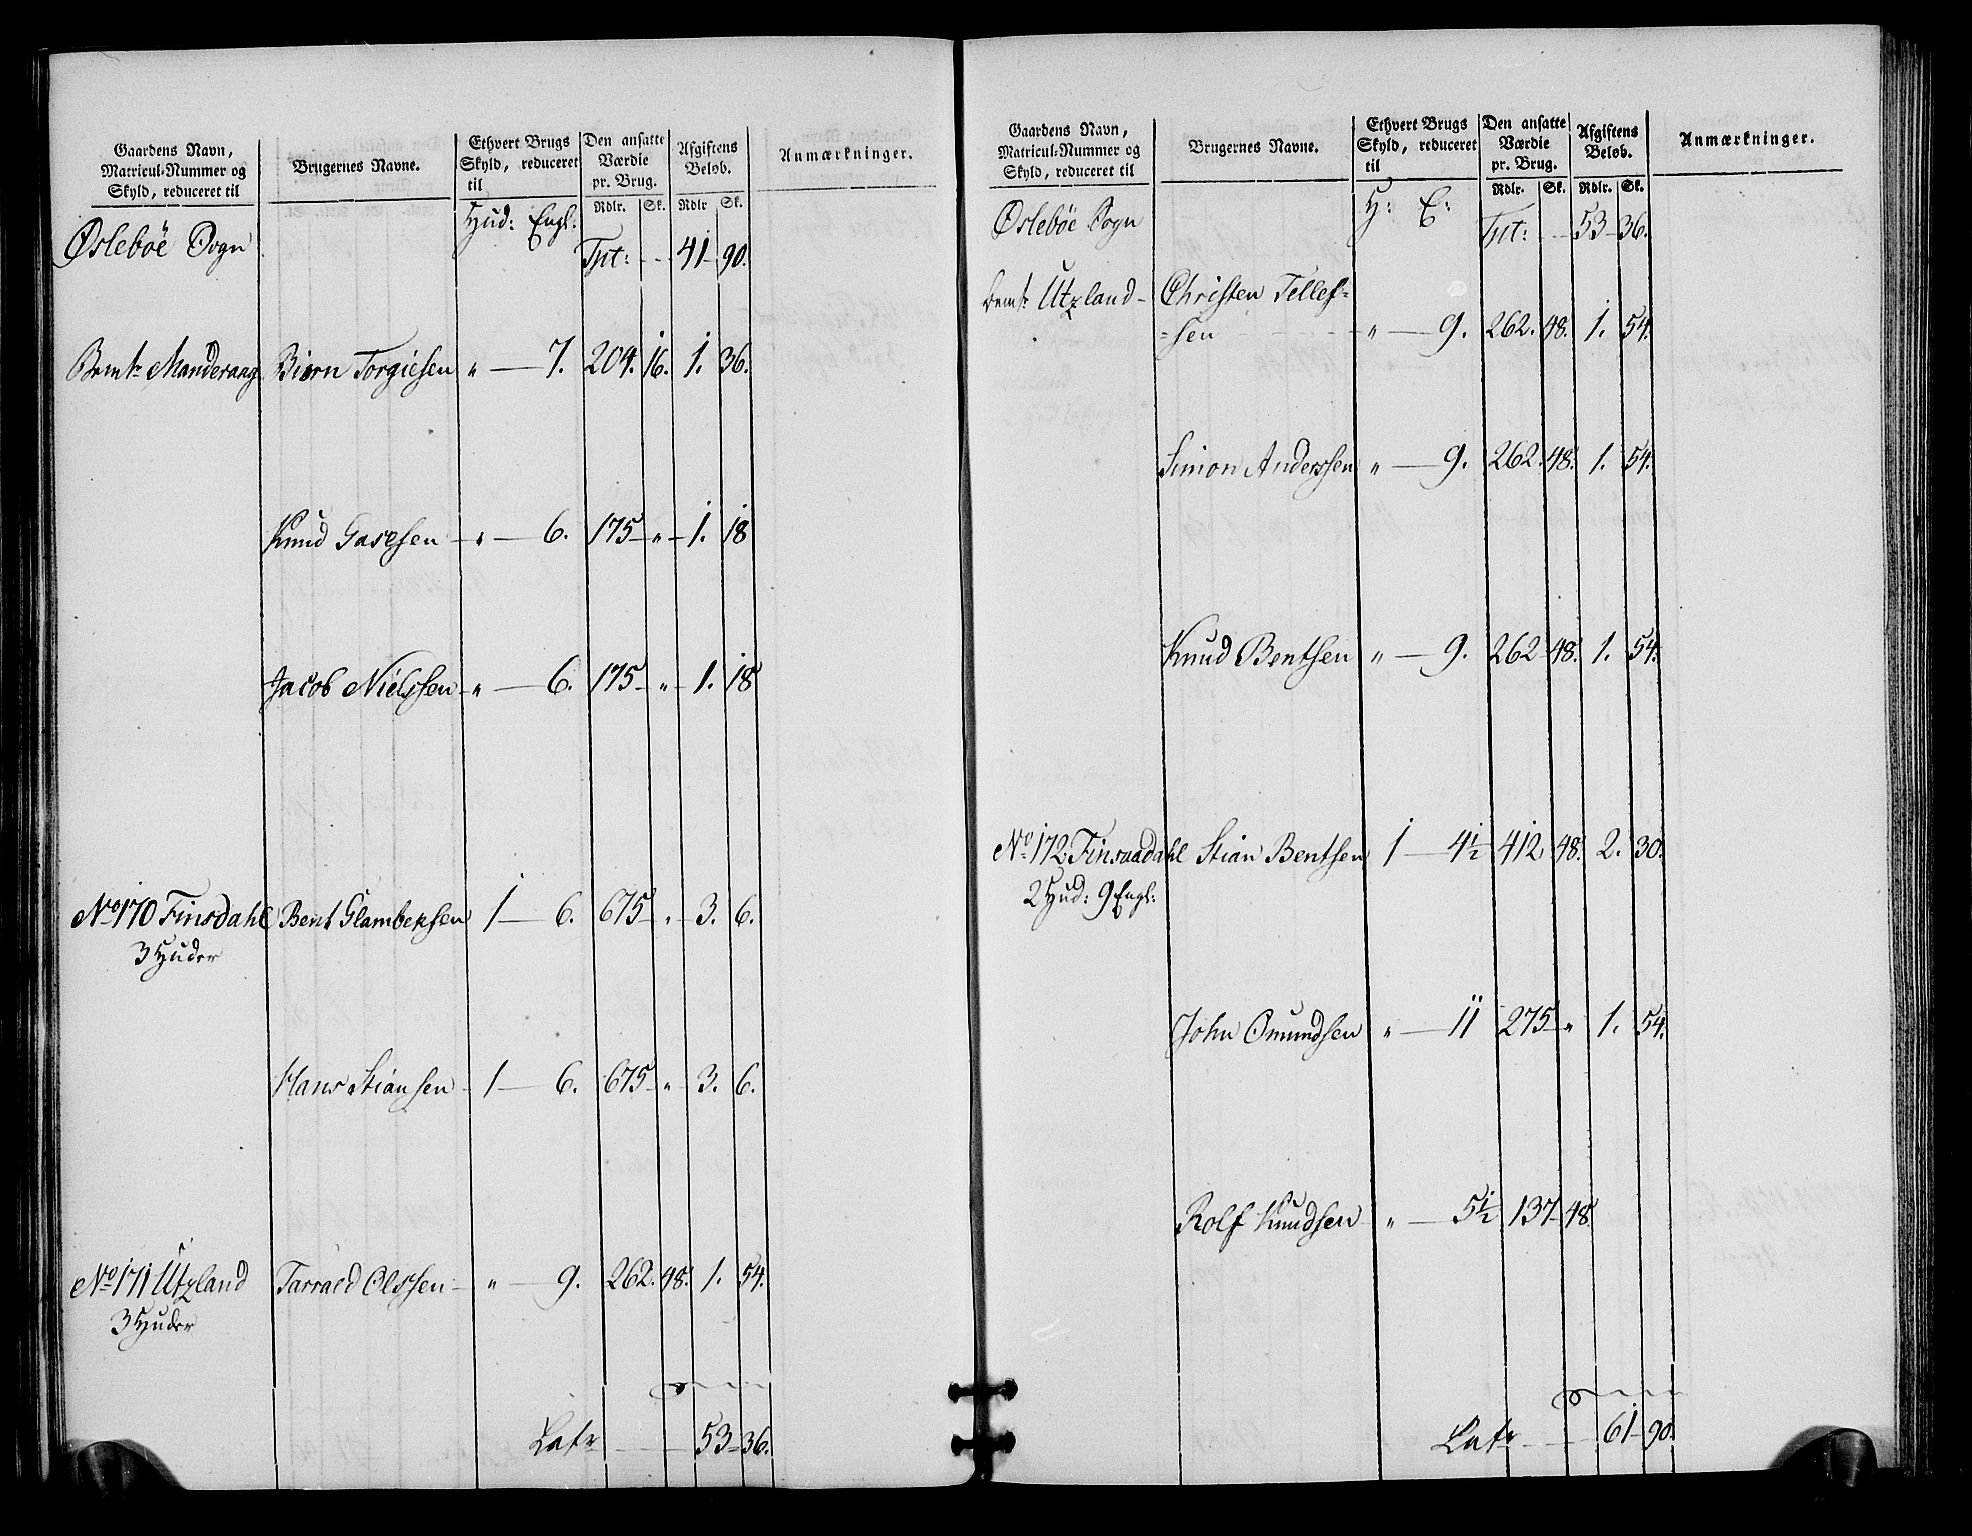 Gaardens Navn,
Matricul-Nummer og
Skyld, reduceret til
Brugernes Navne.
Ethvert Brugs
Skyld, reduceret
til
Den ansatte
Værdie
pr. Brug.
Afgiftens
Beløb.
Anmærkninger.
Hud: Engl: Rdlr. Sk. Rdlr Sk.
Øslebøe Sogn Tpt: 41 90.
Bemte Manderang Biørn Torgiesen " 7. 204. 16. 1. 36.
Knud Gasesen " 6. 175 " 1. 18
Jacob Nielssen " 6. 175 " 1. 18
No 170 Finsdahl Bent Glambeksen 1 6. 675 " 3. 6.
3 Huder
Hans Stiansen 1 6. 675 " 3. 6.
No 171 Utzland Tarrald Olssen " 9. 262. 48. 1. 54.
3 Huder
Latr 53 36.
Gaardens Navn,
Matricul-Nummer og
Skyld, reduceret til
Brugernes Navne.
Ethvert Brugs
Skyld, reduceret
til
Den ansatte
Værdie
pr. Brug.
Afgiftens
Beløb.
Anmærkninger.
H: E: Rdlr. Sk. Rdlr. Sk.
Øslebøe Sogn Tpt: 53 36.
Bemte Utzland Christen Tellef=
=sen " 9. 262. 48. 1. 54.
Simon Anderssen " 9. 262. 48. 1. 54.
Knud Bentsen " 9. 262 48. 1. 54.
No 172 Finsaadahl Stian Bentsen 1 4½ 412 48. 2. 30.
2 Hud: 9 Engl:
John Omundsen " 11 275 " 1. 54.
Rolf Knudsen " 5½ 137 48.
Latr 61 90.